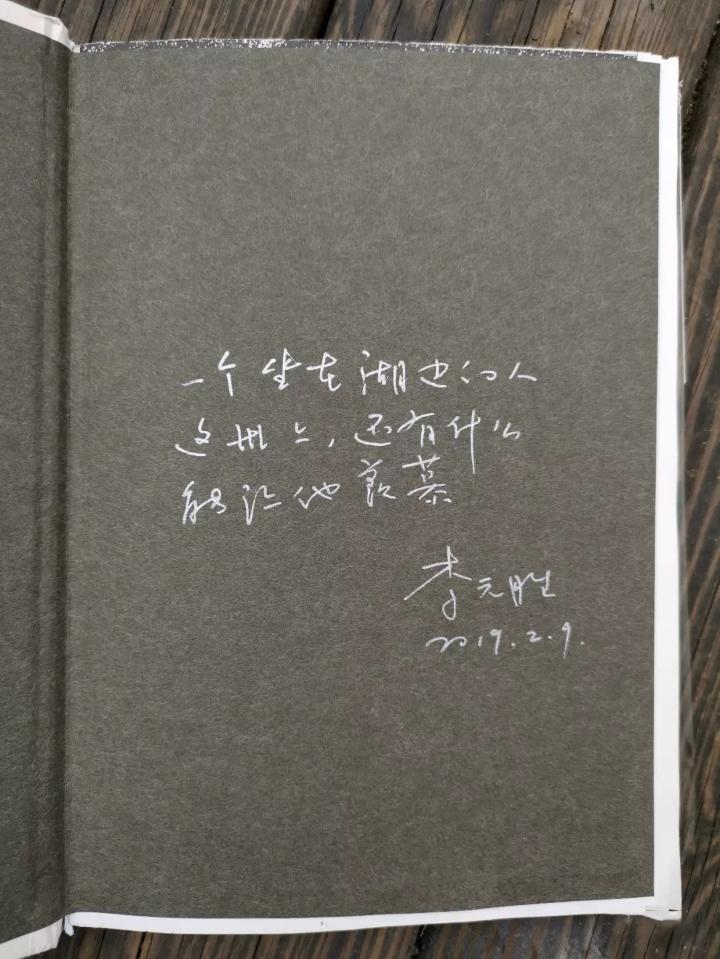 一个坐在湖边的人
这世上，还有什么
能让他羡慕
李元胜
2019.2.9.